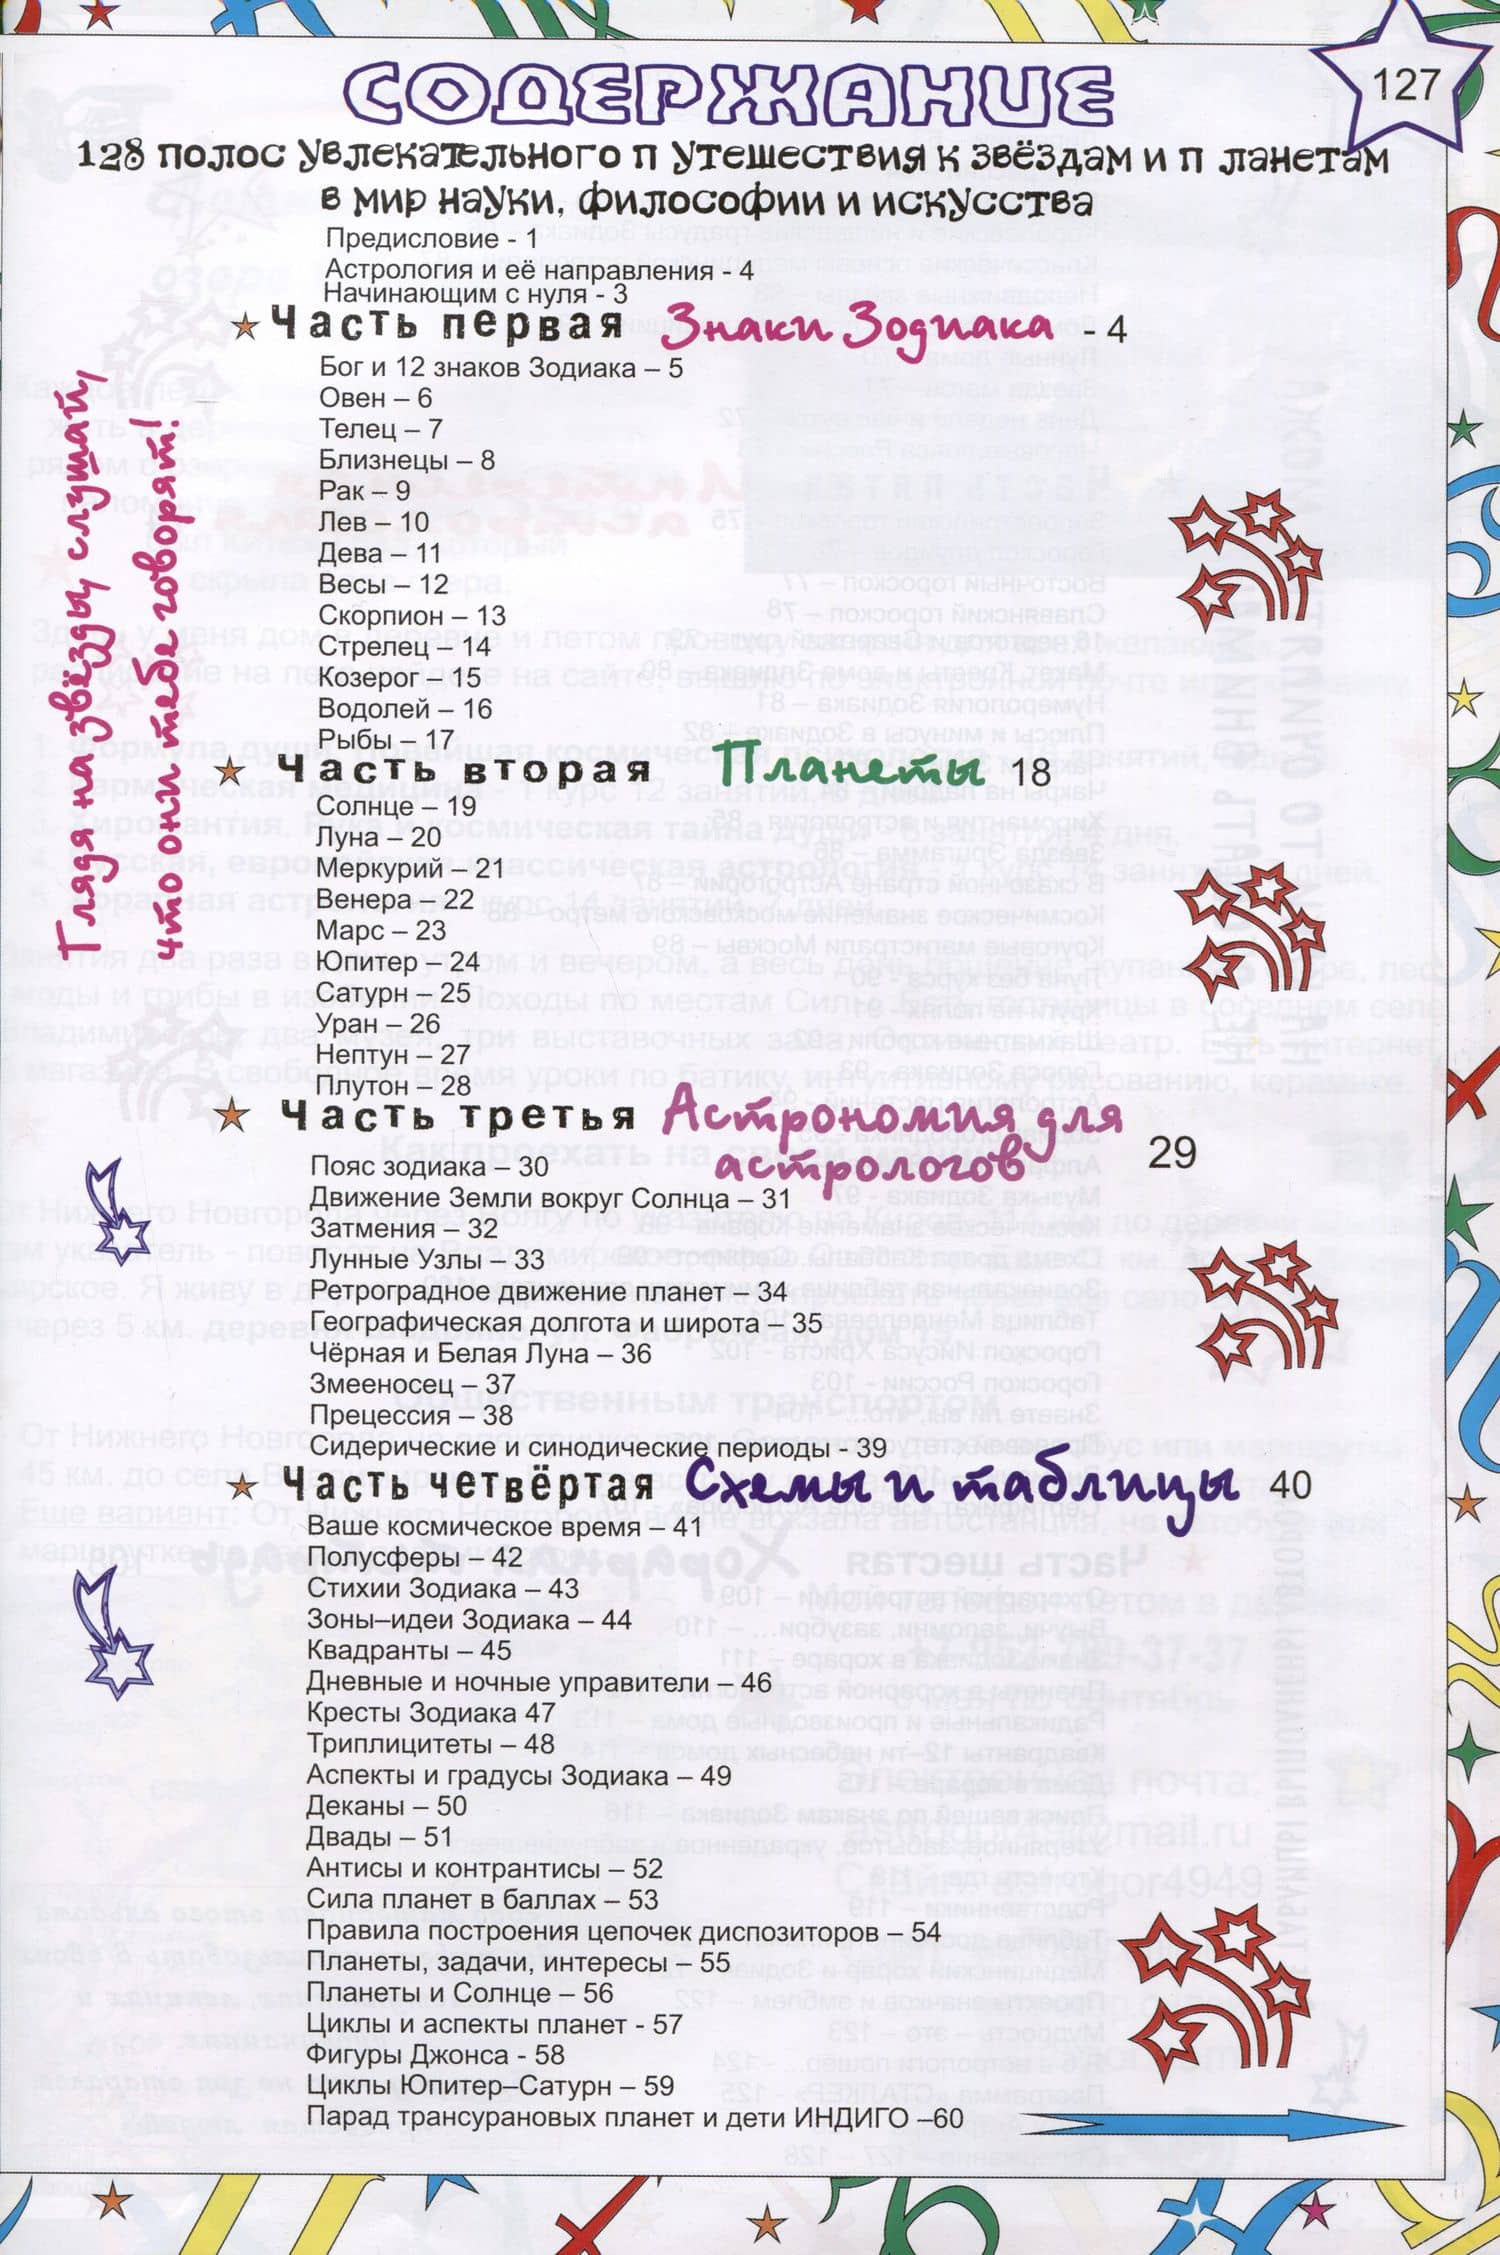 127
СОДЕРЖАНИЕ
128 ПОЛОС УВЛЕКАТЕЛЬНОГО П УТЕШЕСТВИЯ К ЗВЁЗДАМ И П ЛАНЕТАМ
В МИР НАУКИ, ФИЛОСОФИИ И ИСКУССТВА
Предисловие - 1
Астрология и её направления - 4
Начинающим с нуля - 3
Часть первая Знаки Зодиака - 4
Бог и 12 знаков Зодиака – 5
Овен – 6
Телец – 7
Близнецы – 8
Рак – 9
Лев – 10
Дева – 11
Весы – 12
Скорпион – 13
Стрелец – 14
Козерог – 15
Водолей – 16
Рыбы – 17
Часть вторая Планеты 18
Солнце – 19
Луна – 20
Меркурий – 21
Венера – 22
Марс – 23
Юпитер – 24
Сатурн – 25
Уран – 26
Нептун – 27
Плутон – 28
Часть третья Астрономия для
астрологов 29
Пояс зодиака – 30
Движение Земли вокруг Солнца – 31
Затмения – 32
Лунные Узлы – 33
Ретроградное движение планет – 34
Географическая долгота и широта – 35
Чёрная и Белая Луна – 36
Змееносец – 37
Прецессия – 38
Сидерические и синодические периоды - 39
Часть четвёртая Схемы и таблицы 40
Ваше космическое время – 41
Полусферы – 42
Стихии Зодиака – 43
Зоны–идеи Зодиака – 44
Квадранты – 45
Дневные и ночные управители – 46
Кресты Зодиака 47
Триплицитеты – 48
Аспекты и градусы Зодиака – 49
Деканы – 50
Двады – 51
Антисы и контрантисы – 52
Сила планет в баллах – 53
Правила построения цепочек диспозиторов – 54
Планеты, задачи, интересы – 55
Планеты и Солнце – 56
Циклы и аспекты планет - 57
Фигуры Джонса - 58
Циклы Юпитер–Сатурн – 59
Парад трансурановых планет и дети ИНДИГО –60
Глядя на звёзды слушай,
что они тебе говорят!